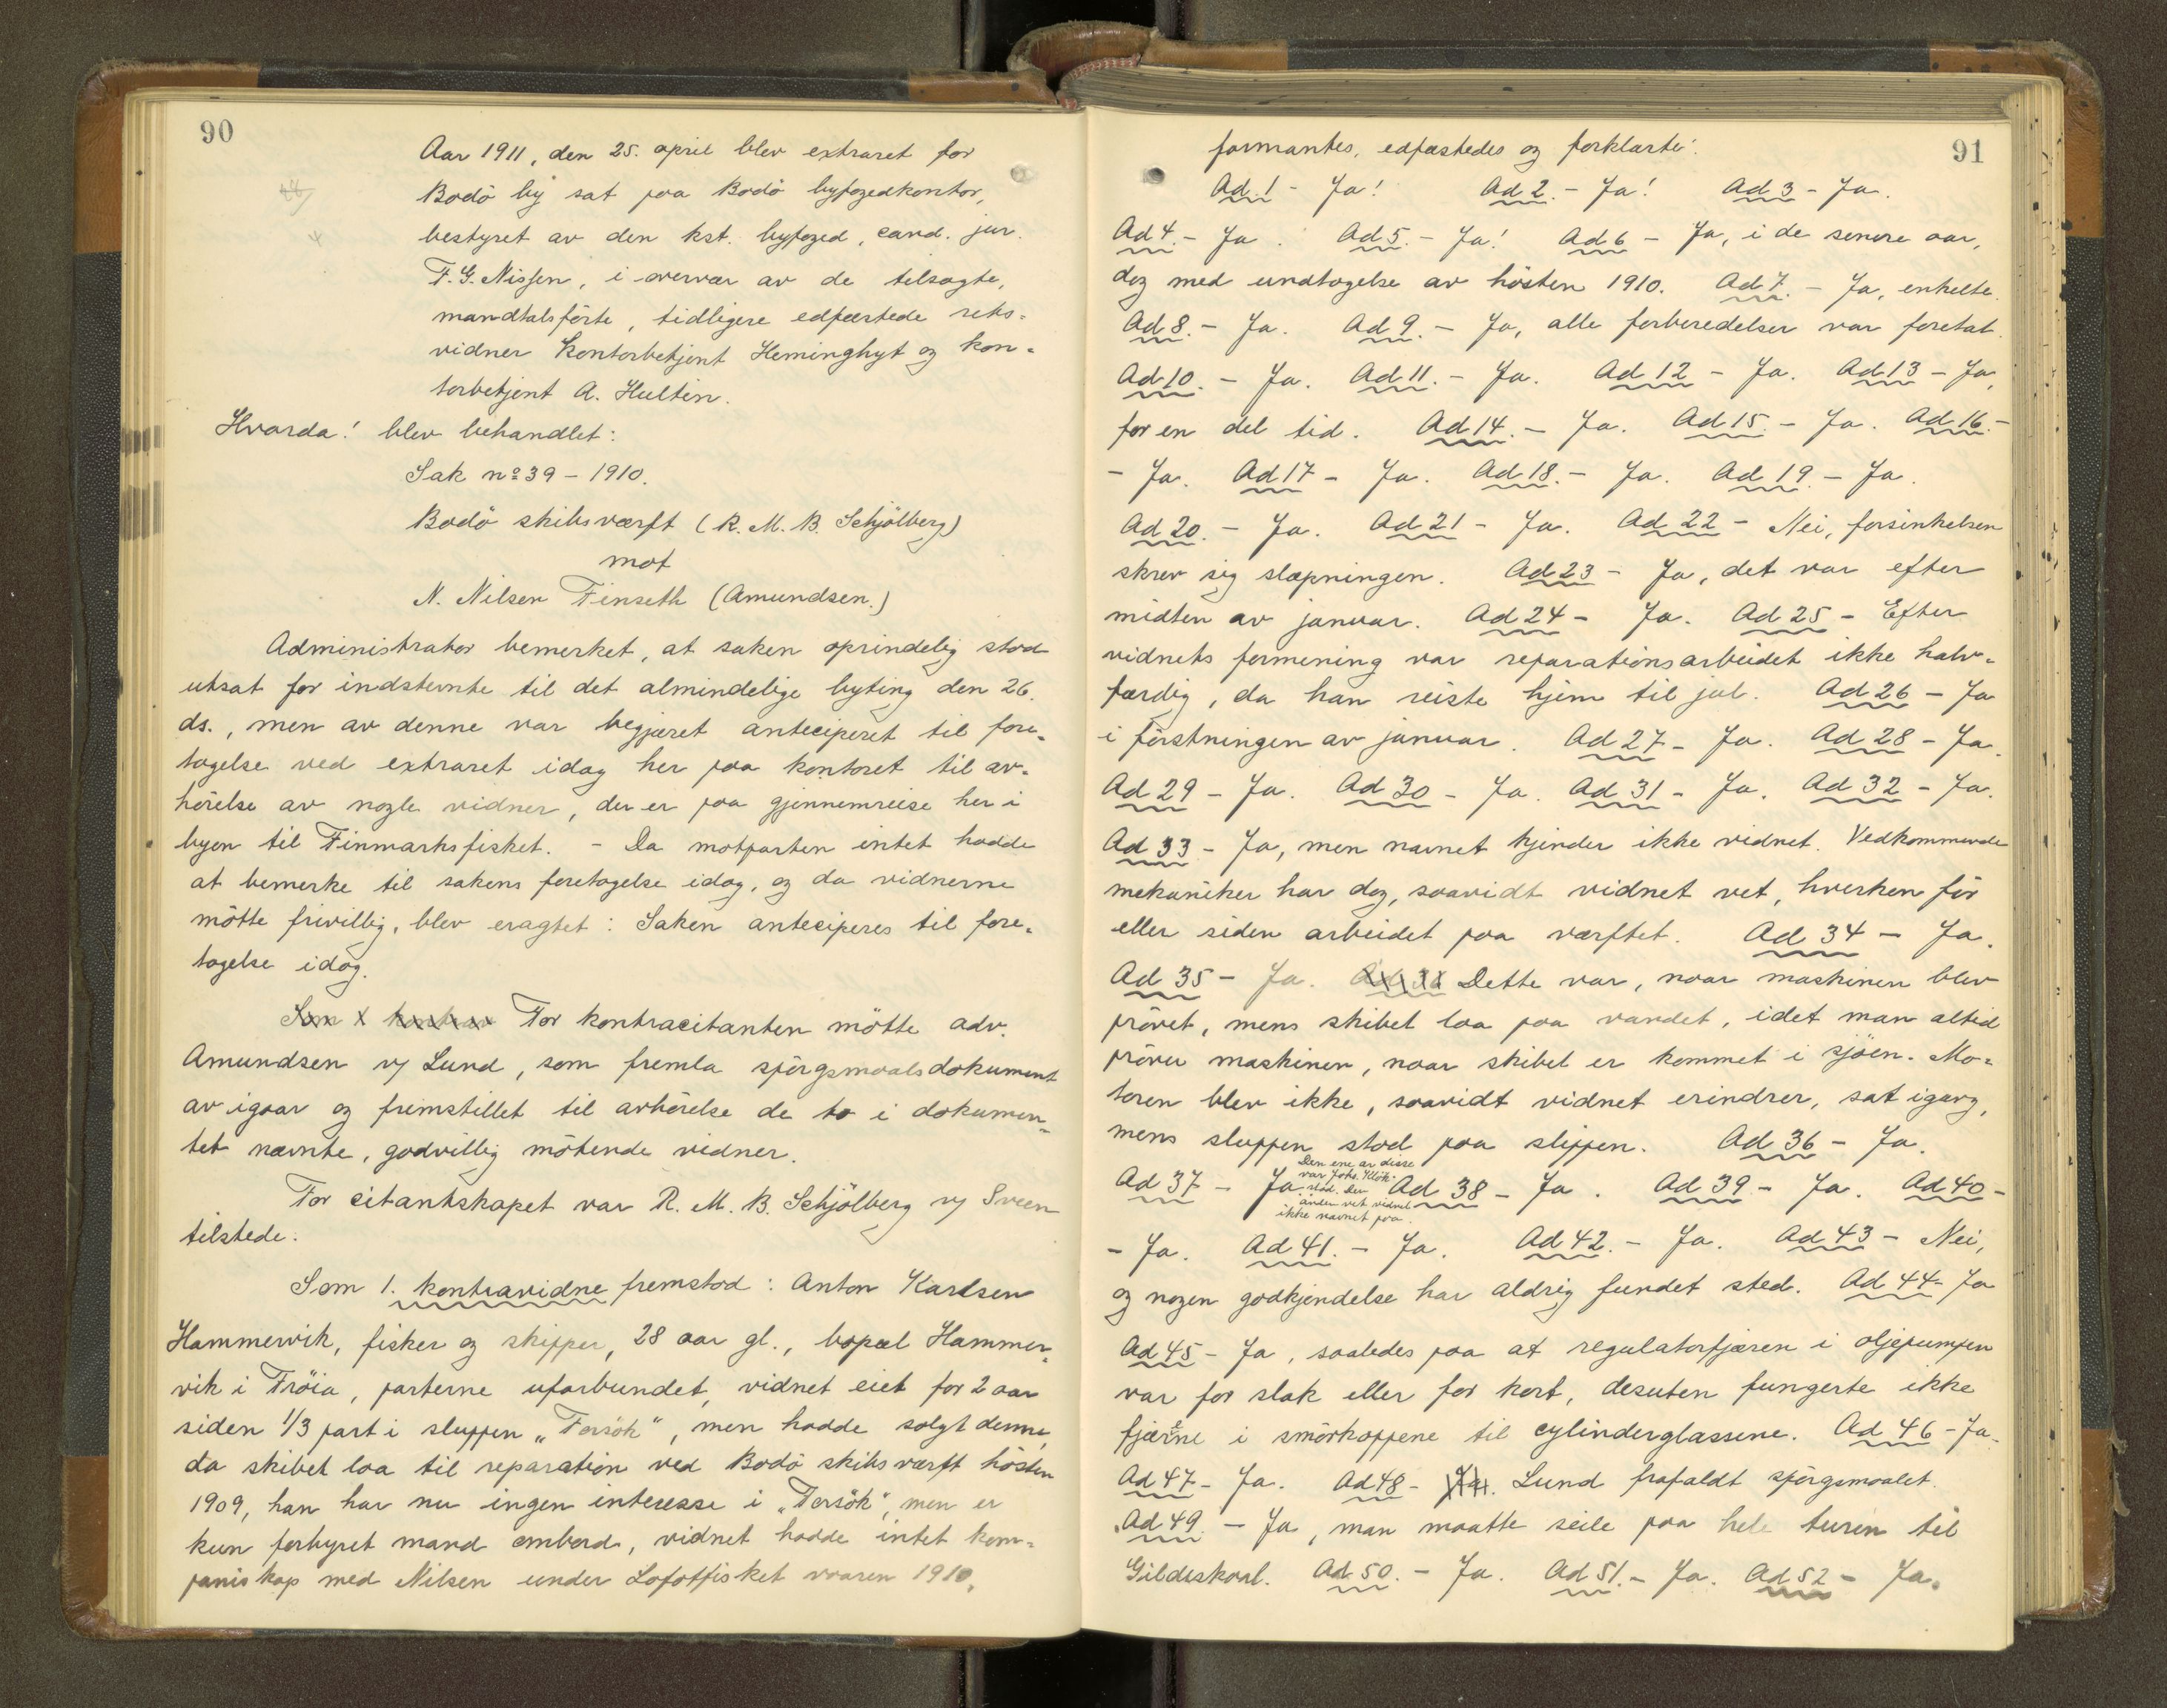 90
Aar 1911, den 25. april blev extraret for
Bodö by sat paa Bodö byfogedkontor,
bestyret av den kst. byfoged, cand. jur.
F. G. Nissen, i overvær av de tilsagte,
mandtalsförte, tidligere edfæstede rets-
vidner kontorbetjent Heminghyt og kon-
torbetjent A. Hultin.
Hvorda! blev behandlet:
Sak nº 39 - 1910.
Bodö skibsværft (R. M. B. Schjölberg)
mot
N. Nilsen Finseth (Amundsen.)
Administrator bemerket, at saken oprindelig stod
utsat for indstevnte til det almindelige byting den 26.
ds., men av denne var begjæret anteciperet til fore-
tagelse ved extraret idag her paa kontoret til av-
hörelse av nogle vidner, der er paa gjennemreise her i
byen til Finmarksfisket. - Da motparten intet hadde
at bemerke til sakens foretagelse idag, og da vidnerne
mötte frivillig, blev eragtet: Saken anteciperes til fore-
tagelse idag.
For kontracitanten mötte adv.
Amundsen v/ Lund, som fremla spörgsmaalsdokument
av igaar og fremstillet til avhörelse de to i dokumen-
tet nævnte, godvillig mötende vidner.
For citantskapet var R. M. B. Schjölberg v/ Sveen
tilstede.
Som 1. kontravidne fremstod: Anton Karlsen
Hammervik, fisker og skipper, 28 aar gl., bopæl Hammer-
vik i Fröia, parterne uforbundet, vidnet eiet for 2 aar
siden 1/3 part i sluppen „Forsök“, men hadde solgt denne,
da skibet laa til reparation ved Bodö skibsværft hösten
1909, han har nu ingen interesse i „Forsök“, men er
kun forhyret mand ombord, vidnet hadde intet kom-
paniskap med Nilsen under Lofotfisket vaaren 1910,
91
formantes, edfæstedes og forklarte:
Ad 1 - Ja! Ad 2. - Ja! Ad 3 - Ja.
Ad 4. - Ja. Ad 5. - Ja! Ad 6 - Ja, i de senere aar,
dog med undtagelse av hösten 1910. Ad 7. - Ja, enkelte.
Ad 8. - Ja. Ad 9. - Ja, alle forberedelser var foretat.
Ad 10. - Ja. Ad 11. - Ja. Ad 12 - Ja. Ad 13 - Ja,
for en del tid. Ad 14. - Ja. Ad 15. - Ja. Ad 16. -
- Ja. Ad 17 - Ja. Ad 18. - Ja. Ad 19. - Ja.
Ad 20. - Ja. Ad 21 - Ja. Ad 22 - Nei, forsinkelsen
skrev sig slæpningen. Ad 23 - Ja, det var efter
midten av januar. Ad 24 - Ja. Ad 25 - Efter
vidnets formening var reparationsarbeidet ikke halv-
færdig, da han reiste hjem til jul. Ad 26 - Ja
i förstningen av januar. Ad 27 - Ja. Ad 28 - Ja.
Ad 29 - Ja. Ad 30 - Ja. Ad 31 - Ja. Ad 32 - Ja.
Ad 33 - Ja, men navnet kjender ikke vidnet. Vedkommende
mekaniker har dog, saavidt vidnet vet, hverken för
eller siden arbeidet paa værftet. Ad 34 - Ja.
Ad 35 - Ja. Dette var, naar maskinen blev
prövet, mens skibet laa paa vandet, idet man altid
pröver maskinen, naar skibet er kommet i sjöen. Mo-
toren blev ikke, saavidt vidnet erindrer, sat igang,
mens sluppen stod paa slippen. Ad 36 - Ja.
Den ene av disse
var Johs. Klök-
stad. Den
anden vet vidnet
ikke navnet paa.
Ad 37 - Ja Ad 38 - Ja. Ad 39 - Ja. Ad 40 -
- Ja. Ad 41. - Ja. Ad 42. - Ja. Ad 43 - Nei,
og nogen godkjendelse har aldrig fundet sted. Ad 44 - Ja
Ad 45 - Ja, saaledes paa at regulatorfjæren i oljepumpen
var for slak eller for kort, desuten fungerte ikke
fjærene i smörkoppene til cylinderglassene. Ad 46 - Ja.
Ad 47 - Ja. Ad 48 - Ja. Lund frafaldt spörgsmaalet.
Ad 49. - Ja, man maatte seile paa hele turen til
Gildeskaal. Ad 50. - Ja. Ad 51. - Ja. Ad 52 - Ja.